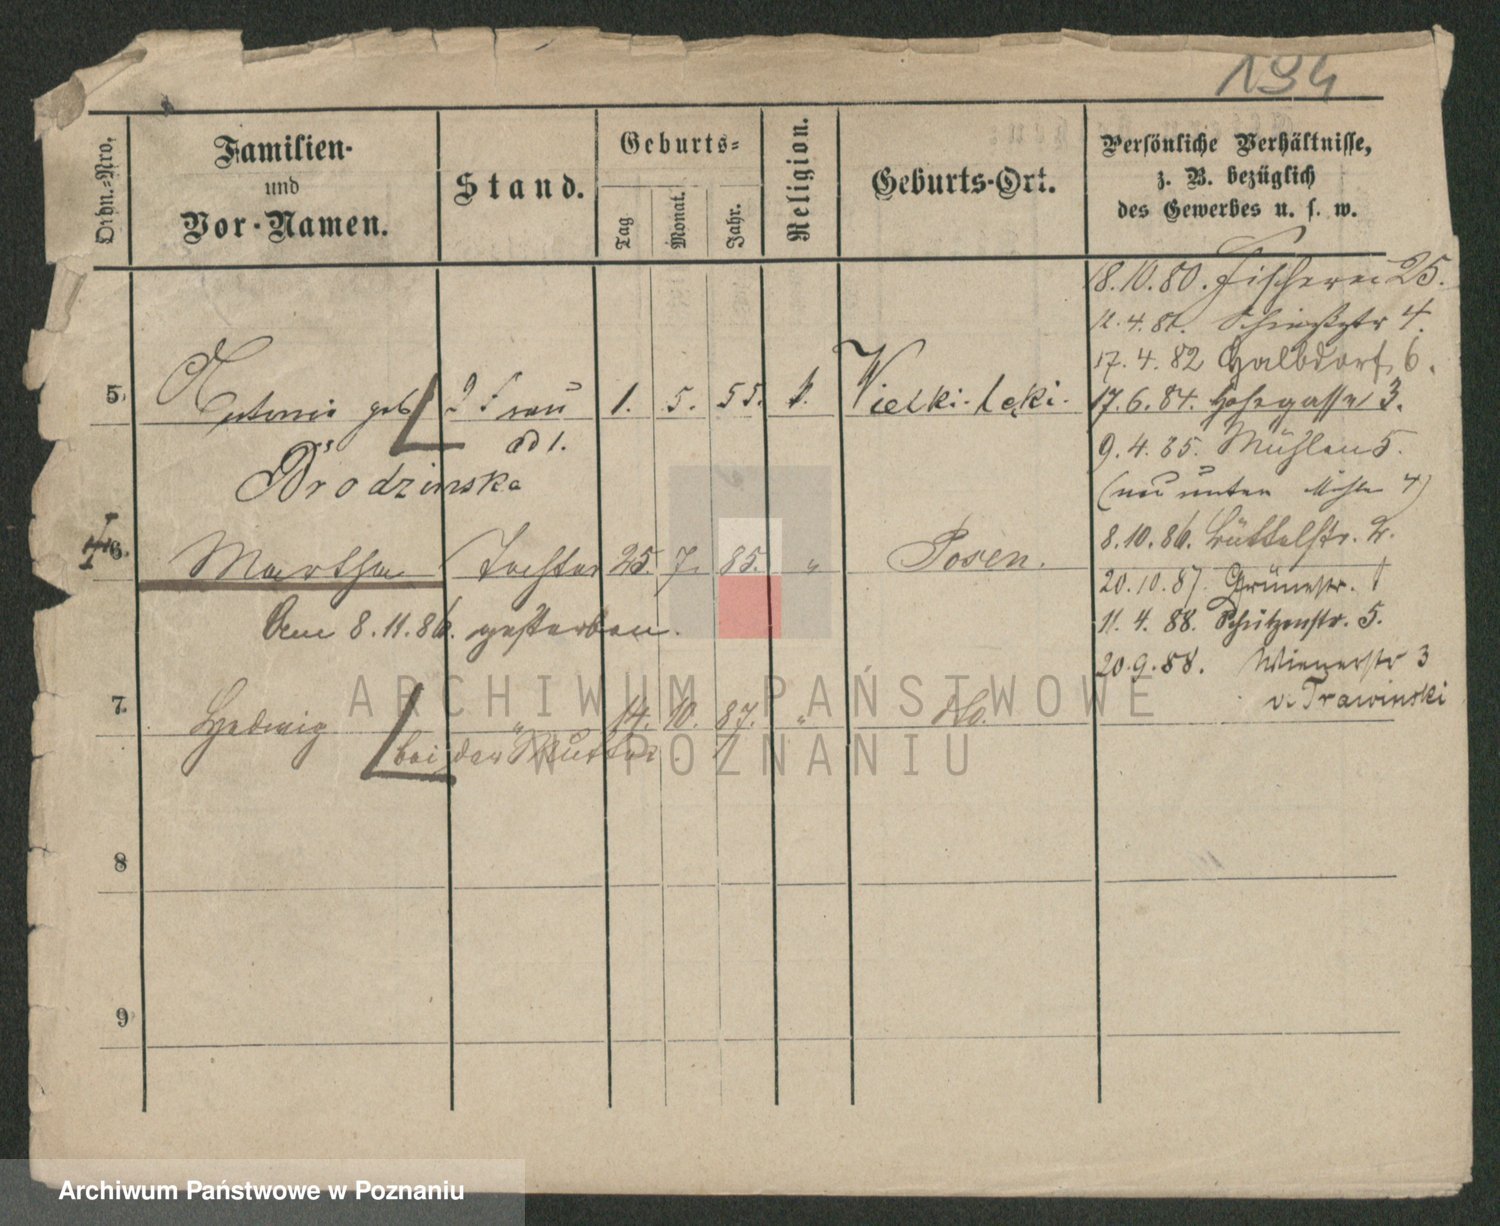 194
Ordn.-Nro.
Familien-
und
Vor-Namen.
Stand.
Geburts-
Tag
Monat.
Jahr.
Religion.
Geburts-Ort.
Persönliche Verhältnisse,
z. B. bezüglich
des Gewerbes u. s. w.
18.10.80. Fischerei 25.
12.4.81. Schießstr 4.
17.4.82 Halbdorf 6.
5. Antonie geb 2 Frau 1. 5. 55. k. Wielki-Łęki.
17.6.84. Hohegasse 3.
ad 1.
9.4.85. Mühlen 5.
Brodzinska
(nun unten 4)
8.10.86. Büttelstr. 2.
6. Martha Tochter 25. 7. 85. " Posen.
20.10.87. Grünestr. 1
Am 8.11.86. gestorben.
11.4.88. Schützenstr. 5.
20.9.88. Wienerstr 3
v. Trawinski
7. Hedwig " 14. 10. 87. " do.
bei der Mutter.
8
9
ARCHIWUM PAŃSTWOWE
W POZNANIU
Archiwum Państwowe w Poznaniu